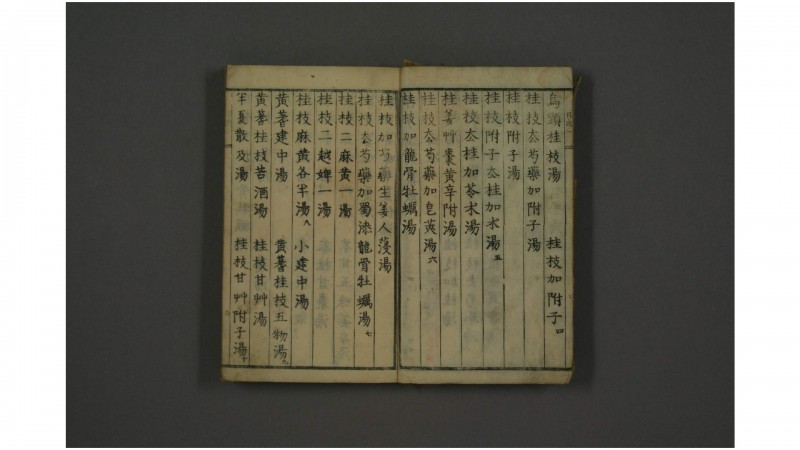 烏頭桂枝湯　桂枝加附子四
桂枝去芍藥加附子湯
桂枝附子湯
桂枝附子去桂加朮湯五
桂枝去桂加苓朮湯
桂姜艸棗黃辛附湯
桂枝去芍藥加皂莢湯六
桂枝加龍骨牡蠣湯
桂枝加芍藥生姜人薓湯
桂枝去芍藥加蜀漆龍骨牡蠣湯七
桂枝二麻黃一湯
桂枝二越婢一湯
桂枝麻黃各半湯八　小建中湯
黃蓍建中湯　黃蓍桂枝五物湯九
黃蓍桂枝苦酒湯　桂枝甘艸湯
半夏散及湯　桂枝甘艸附子湯十